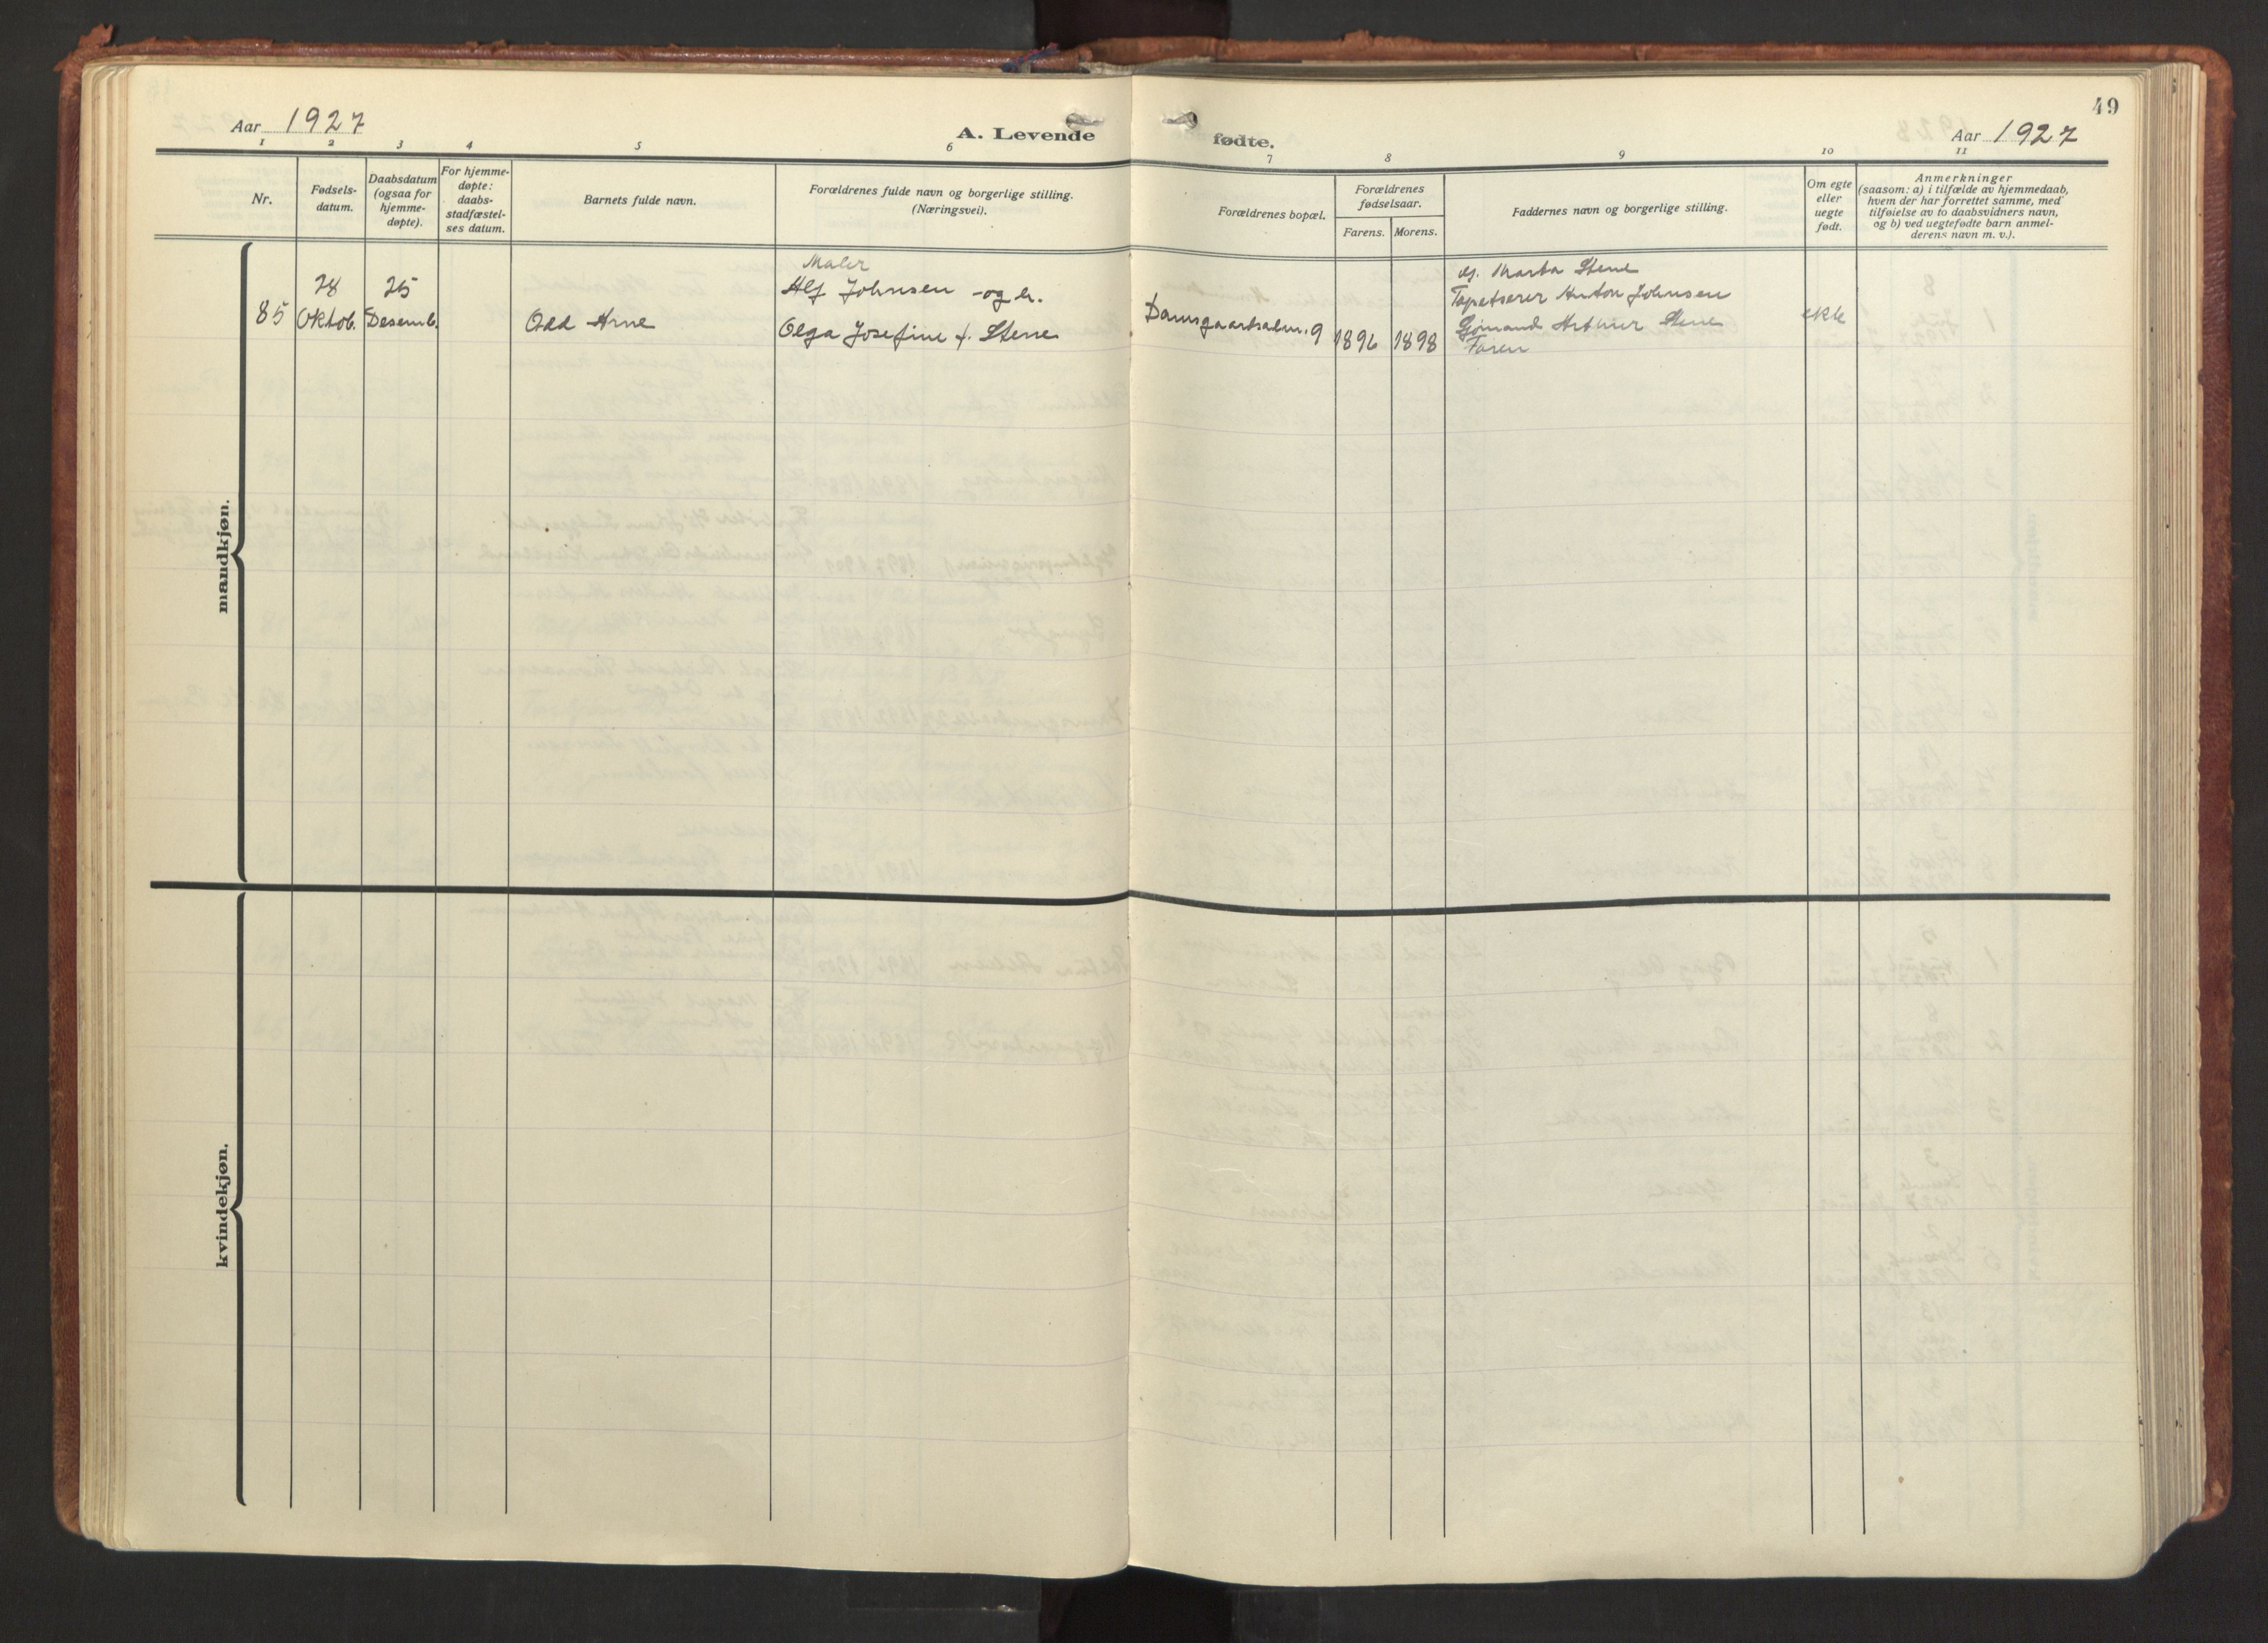 49
Aar 1927
A. Levende fødte.
Aar 1927
1 2 3 4 5 6 7 8 9 10 11
Nr.
Fødsels-
datum.
Daabsdatum
(ogsaa for
hjemme-
døpte).
For hjemme-
døpte:
daabs-
stadfæstel-
ses datum.
Barnets fulde navn.
Forældrenes fulde navn og borgerlige stilling.
(Næringsvei).
Forældrenes bopæl.
Forældrenes
fødselsaar.
Farens. Morens.
Faddernes navn og borgerlige stilling.
Om egte
eller
uegte
født.
Anmerkninger
(saasom: a) i tilfælde av hjemmedaab,
hvem der har forrettet samme, med
tilføielse av to daabsvidners navn,
og b) ved uegtefødte barn anmel-
derens navn m. v.).
mandkjøn.
85
28
Oktob.
25
Desemb.
Odd Arne
Maler
Alf Johnsen og h.
Olga Josefine f. Stene
Damsgaardsalm. 9
1896
1898
Marta Stene
Tapetserer Anton Johnsen
Sjømand Arthur Stene
Faren
ekte
kvindekjøn.